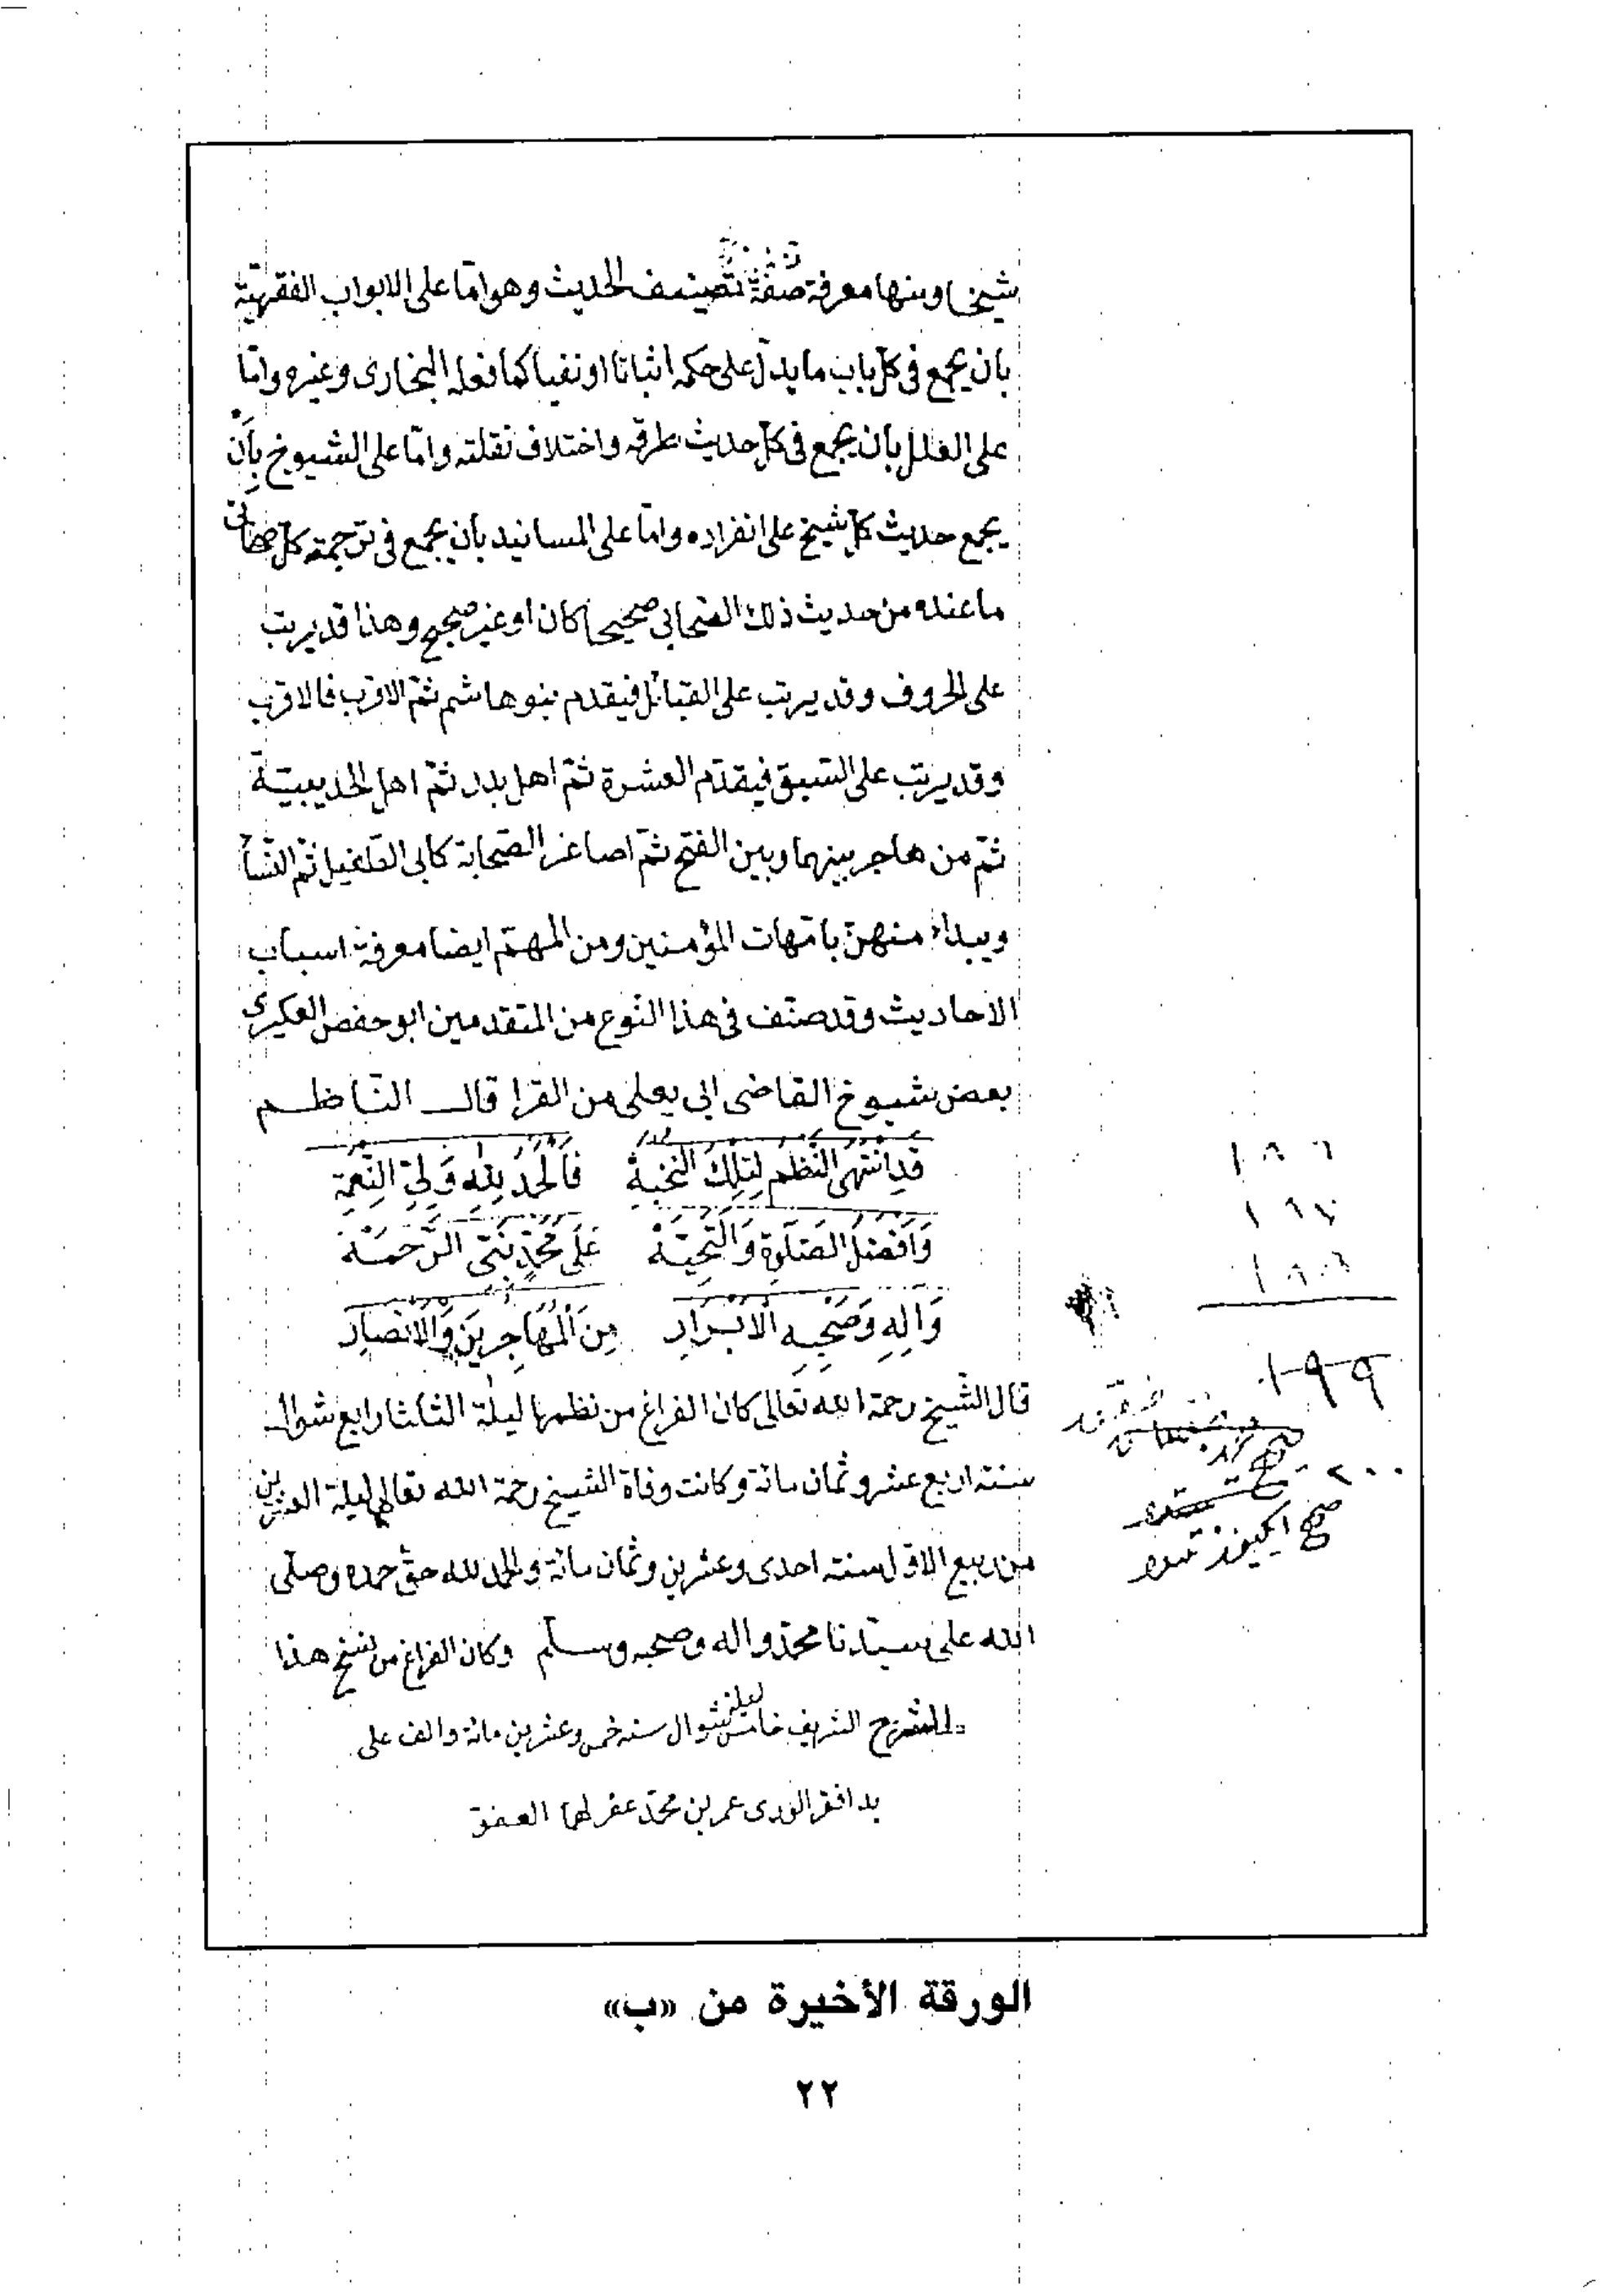 شيخا ومنها معرفة صفة تصنيف الحديث وهو امّا على الابواب الفقهيّة
بان يجمع فى كلّ باب ما يدلّ على حكمه اثباتا او نفيا كما فعله البخارى وغيره وامّا
على العلل بأن يجمع فى كلّ حديث طرقه واختلاف نقلته وامّا على الشيوخ بأن
يجمع حديث كلّ شيخ على انفراده وامّا على المسانيد بأن يجمع فى ترجمة كلّ صحابى
ما عنده من حديث ذلك الصّحابى صحيحا كان او غير صحيح وهذا قد يرتب
على الحروف وقد يرتب على القبائل فيقدم بنو هاشم ثمّ الاقرب فالاقرب
وقد يرتب على السّبق فيقدّم العشرة ثمّ اهل بدر ثمّ اهل الحديبيّة
ثمّ من هاجر بينهما وبين الفتح ثمّ اصاغر الصّحابة كابى الطّفيل ثمّ النّسأ
ويبداء منهنّ بامّهات المؤمنين ومن المهمّ ايضا معرفة اسباب
الاحاديث وقد صنّف فى هذا النّوع من المتقدمين ابو حفص العكبرى
بعض شيوخ القاضى ابى يعلى من الفرا قال النّاظم
قَدِ انْتَهَى النَّظْمُ لِتِلْكَ النُّخْبَةْ فَالْحَمْدُ لِلّٰهِ وَلِيِّ النِّعْمَةِ
وَاَفْضَلُ الصَّلٰوةِ وَالتَّحِيَّةْ عَلَى مُحَمَّدٍ نَبِيِّ الرَّحْمَةْ
وَآلِهِ وَصَحْبِهِ الْاَبْرَارِ مِنَ الْمُهَاجِرِينَ وَالْاَنْصَارِ
قال الشّيخ رحمة الله تعالى كان الفراغ من نظمها ليلة الثلثا رابع شوال
سنة اربع عشر وثمان مائة وكانت وفاة الشيخ رحمة الله تعالى ليلة العشرين
من ربيع الاوّل سنة احدى وعشرين وثمان مائة والحمد لله حقّ حمده وصلّى
الله على سيّدنا محمّد واله وصحبه وسلّم وكان الفراغ من نسخ هذا
الشرح الشريف ليلة خامس شوال سنه خمس وعشرين مائة والف على
يد افقر الورى عمر بن محمّد غفر لهما العفوّ
١٨٦
١٩٧
١٩٩
٢٠٠
الورقة الأخيرة من «ب»
٢٢